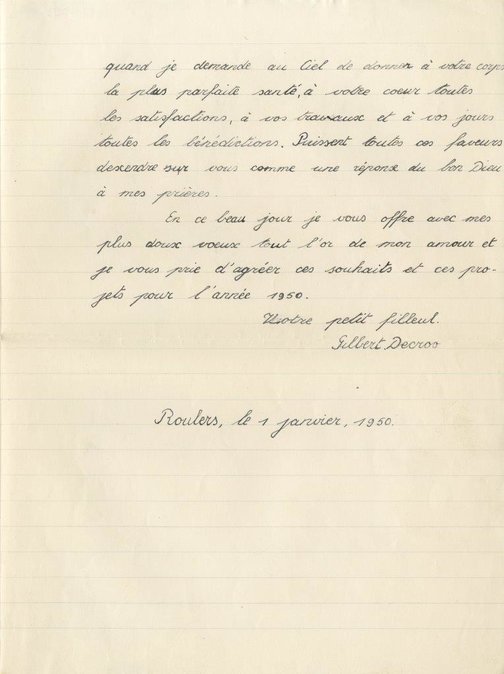 quand je demande au Ciel de donner à votre corps
la plus parfaite santé, à votre coeur toutes
les satisfactions, à vos travaux et à vos jours
toutes les bénédictions. Puissent toutes ces faveurs
descendre sur vous comme une réponse du bon Dieu
à mes prières.
En ce beau jour je vous offre avec mes
plus doux voeux tout l'or de mon amour et
je vous prie d'agréer ces souhaits et ces pro-
jets pour l'année 1950.
Votre petit filleul.
Gilbert Decroo
Roulers, le 1 janvier, 1950.